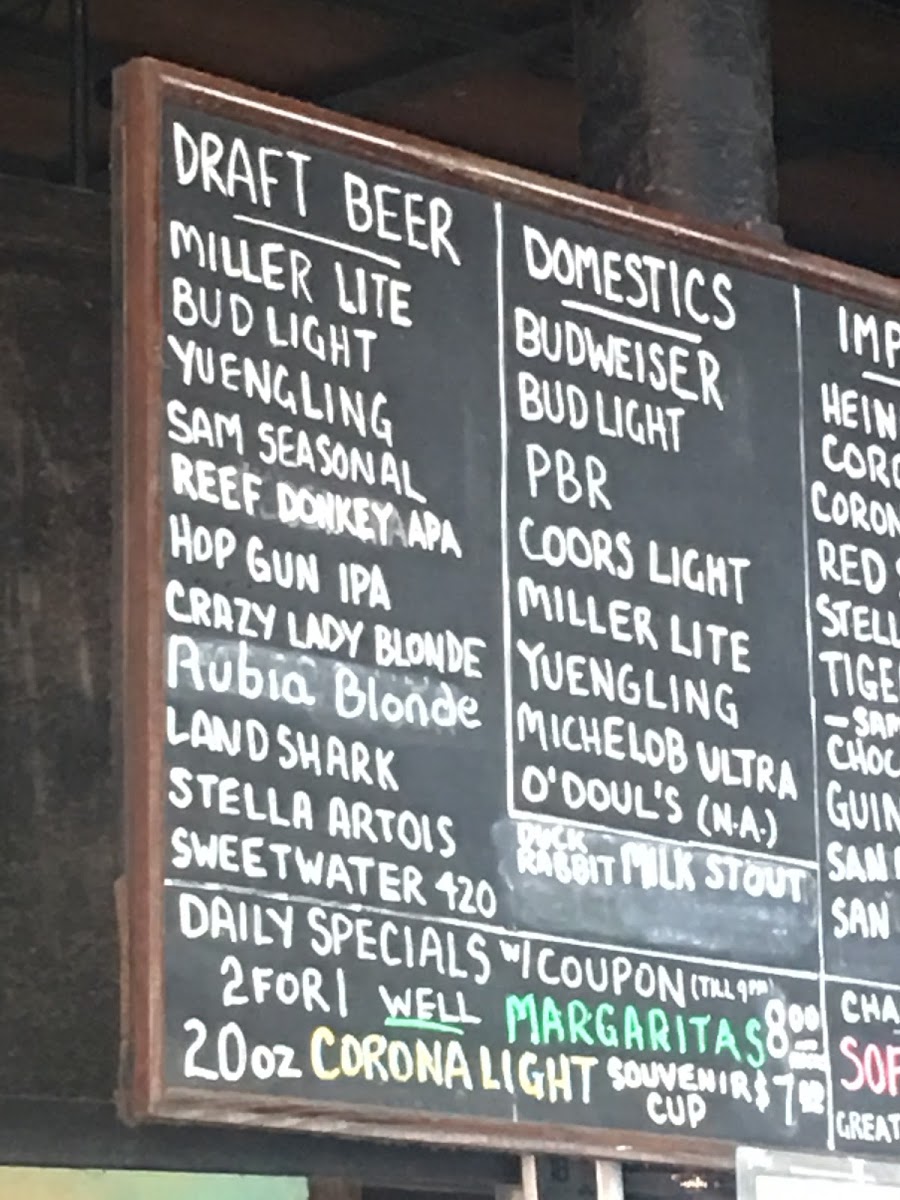 DRAFT BEER
MILLER LITE
BUD LIGHT
YUENGLING
SAM SEASONAL
REEF DONKEY APA
HOP GUN IPA
CRAZY LADY BLONDE
Rubia Blonde
LANDSHARK
STELLA ARTOIS
SWEETWATER 420
DOMESTICS
BUDWEISER
BUD LIGHT
PBR
COORS LIGHT
MILLER LITE
YUENGLING
MICHELOB ULTRA
O'DOUL'S (N.A.)
DUCK
RABBIT MILK STOUT
IMP
HEIN
CORO
CORON
RED
STELL
TIGE
- SAM
CHOC
GUIN
SAN
SAN
DAILY SPECIALS W/ COUPON (TILL 9PM)
2 FOR 1 WELL MARGARITAS 8.00
20oz CORONA LIGHT SOUVENIR CUP $7
CHA
SOF
GREAT